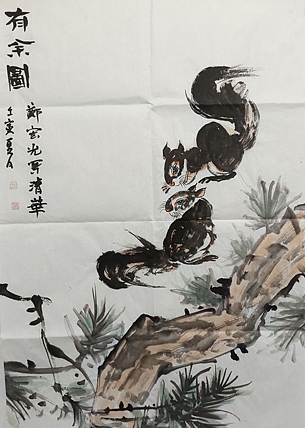 有余圖
鄭宏光写清華
壬寅夏月